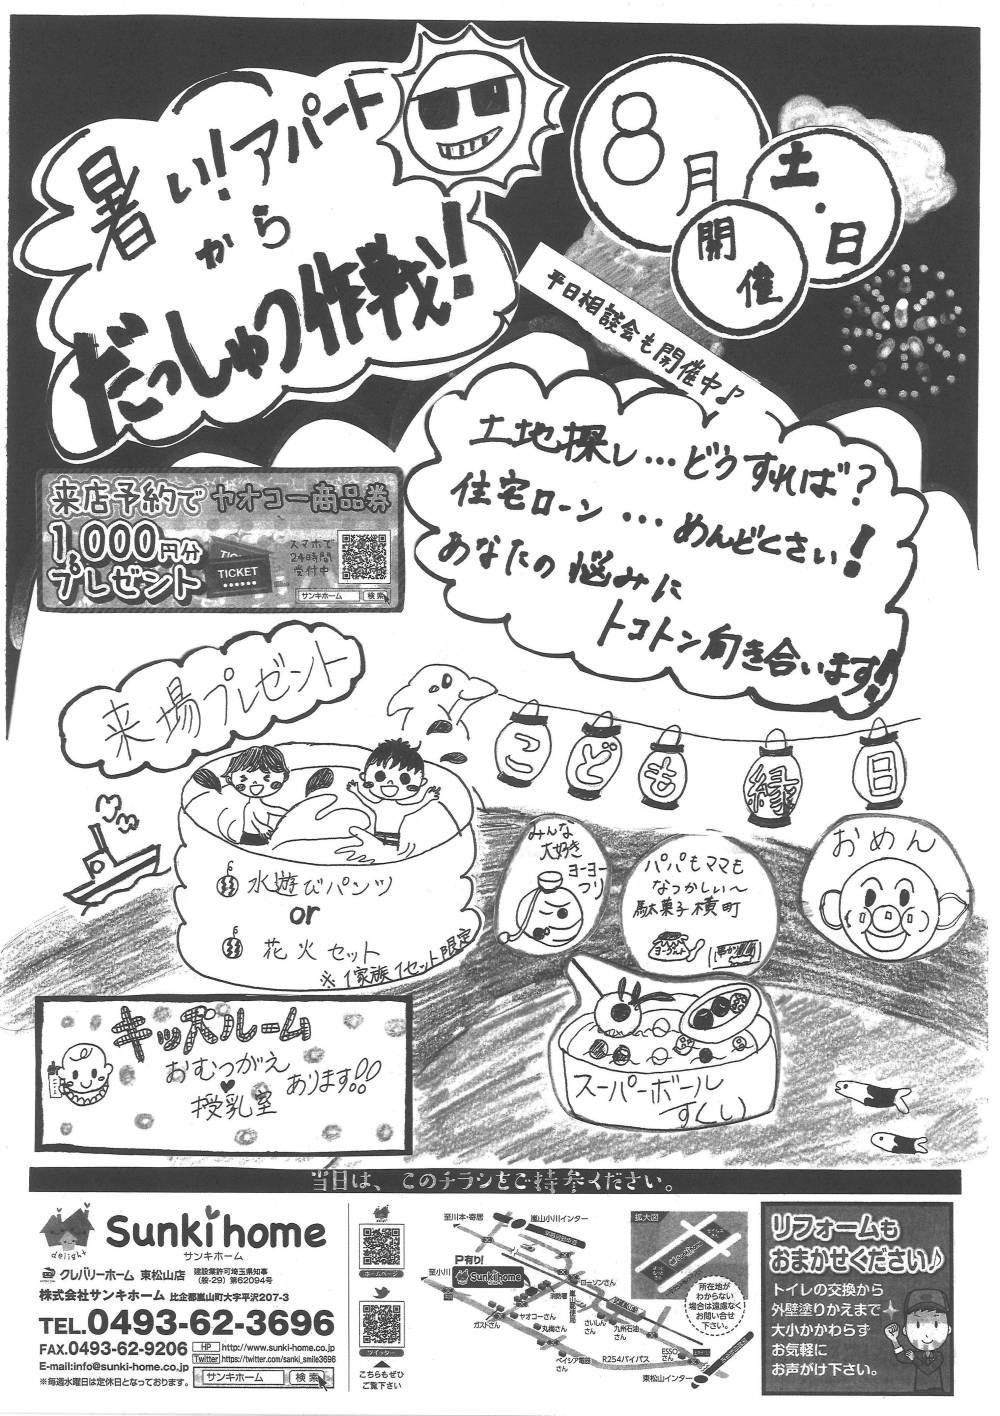 暑い！アパート
から
だっしゅつ作戦！
8月
土・日
開催
平日相談会も開催中♪
土地探し…どうすれば？
住宅ローン…めんどくさい！
あなたの悩みに
トコトン向き合います！
来店予約でヤオコー商品券
1,000円分
プレゼント
TICKET
TICKET
スマホで
24時間
受付中
サンキホーム 検索
来場プレゼント
水遊びパンツ
or
花火セット
※1家族1セット限定
こども縁日
みんな
大好き
ヨーヨー
つり
パパもママも
なつかしい〜
駄菓子横町
ヨーグルト
おめん
スーパーボール
すくい
キッズルーム
おむつがえ
♥
授乳室
あります!!
当日は、このチラシをご持参ください。
delight
Sunki home
サンキホーム
クレバリーホーム 東松山店
建設業許可埼玉県知事
(般-29) 第62094号
株式会社サンキホーム 比企郡嵐山町大字平沢207-3
TEL.0493-62-3696
FAX.0493-62-9206
HP http://www.sunki-home.co.jp
Twitter https://twitter.com/sanki_smile3696
E-mail:info@sunki-home.co.jp
※毎週水曜日は定休日となっております。
サンキホーム 検索
ホームページ
ツイッター
こちらもぜひ
ご覧下さい
至川本・寄居
嵐山小川インター
P有り！
至小川
Sunki home
消防署
ローソンさん
嵐山郵便局
ガストさん
ヤオコーさん
丸梅さん
さいしん
さん
九州石油
さん
ベイシア電器
さん
R254バイパス
ESSO
さん
東松山インター
拡大図
Sunki home
所在地が
わからない
場合は遠慮なく
お問い合せ
下さい。
リフォームも
おまかせください♪
トイレの交換から
外壁塗りかえまで
大小かかわらず
お気軽に
お声がけ下さい。